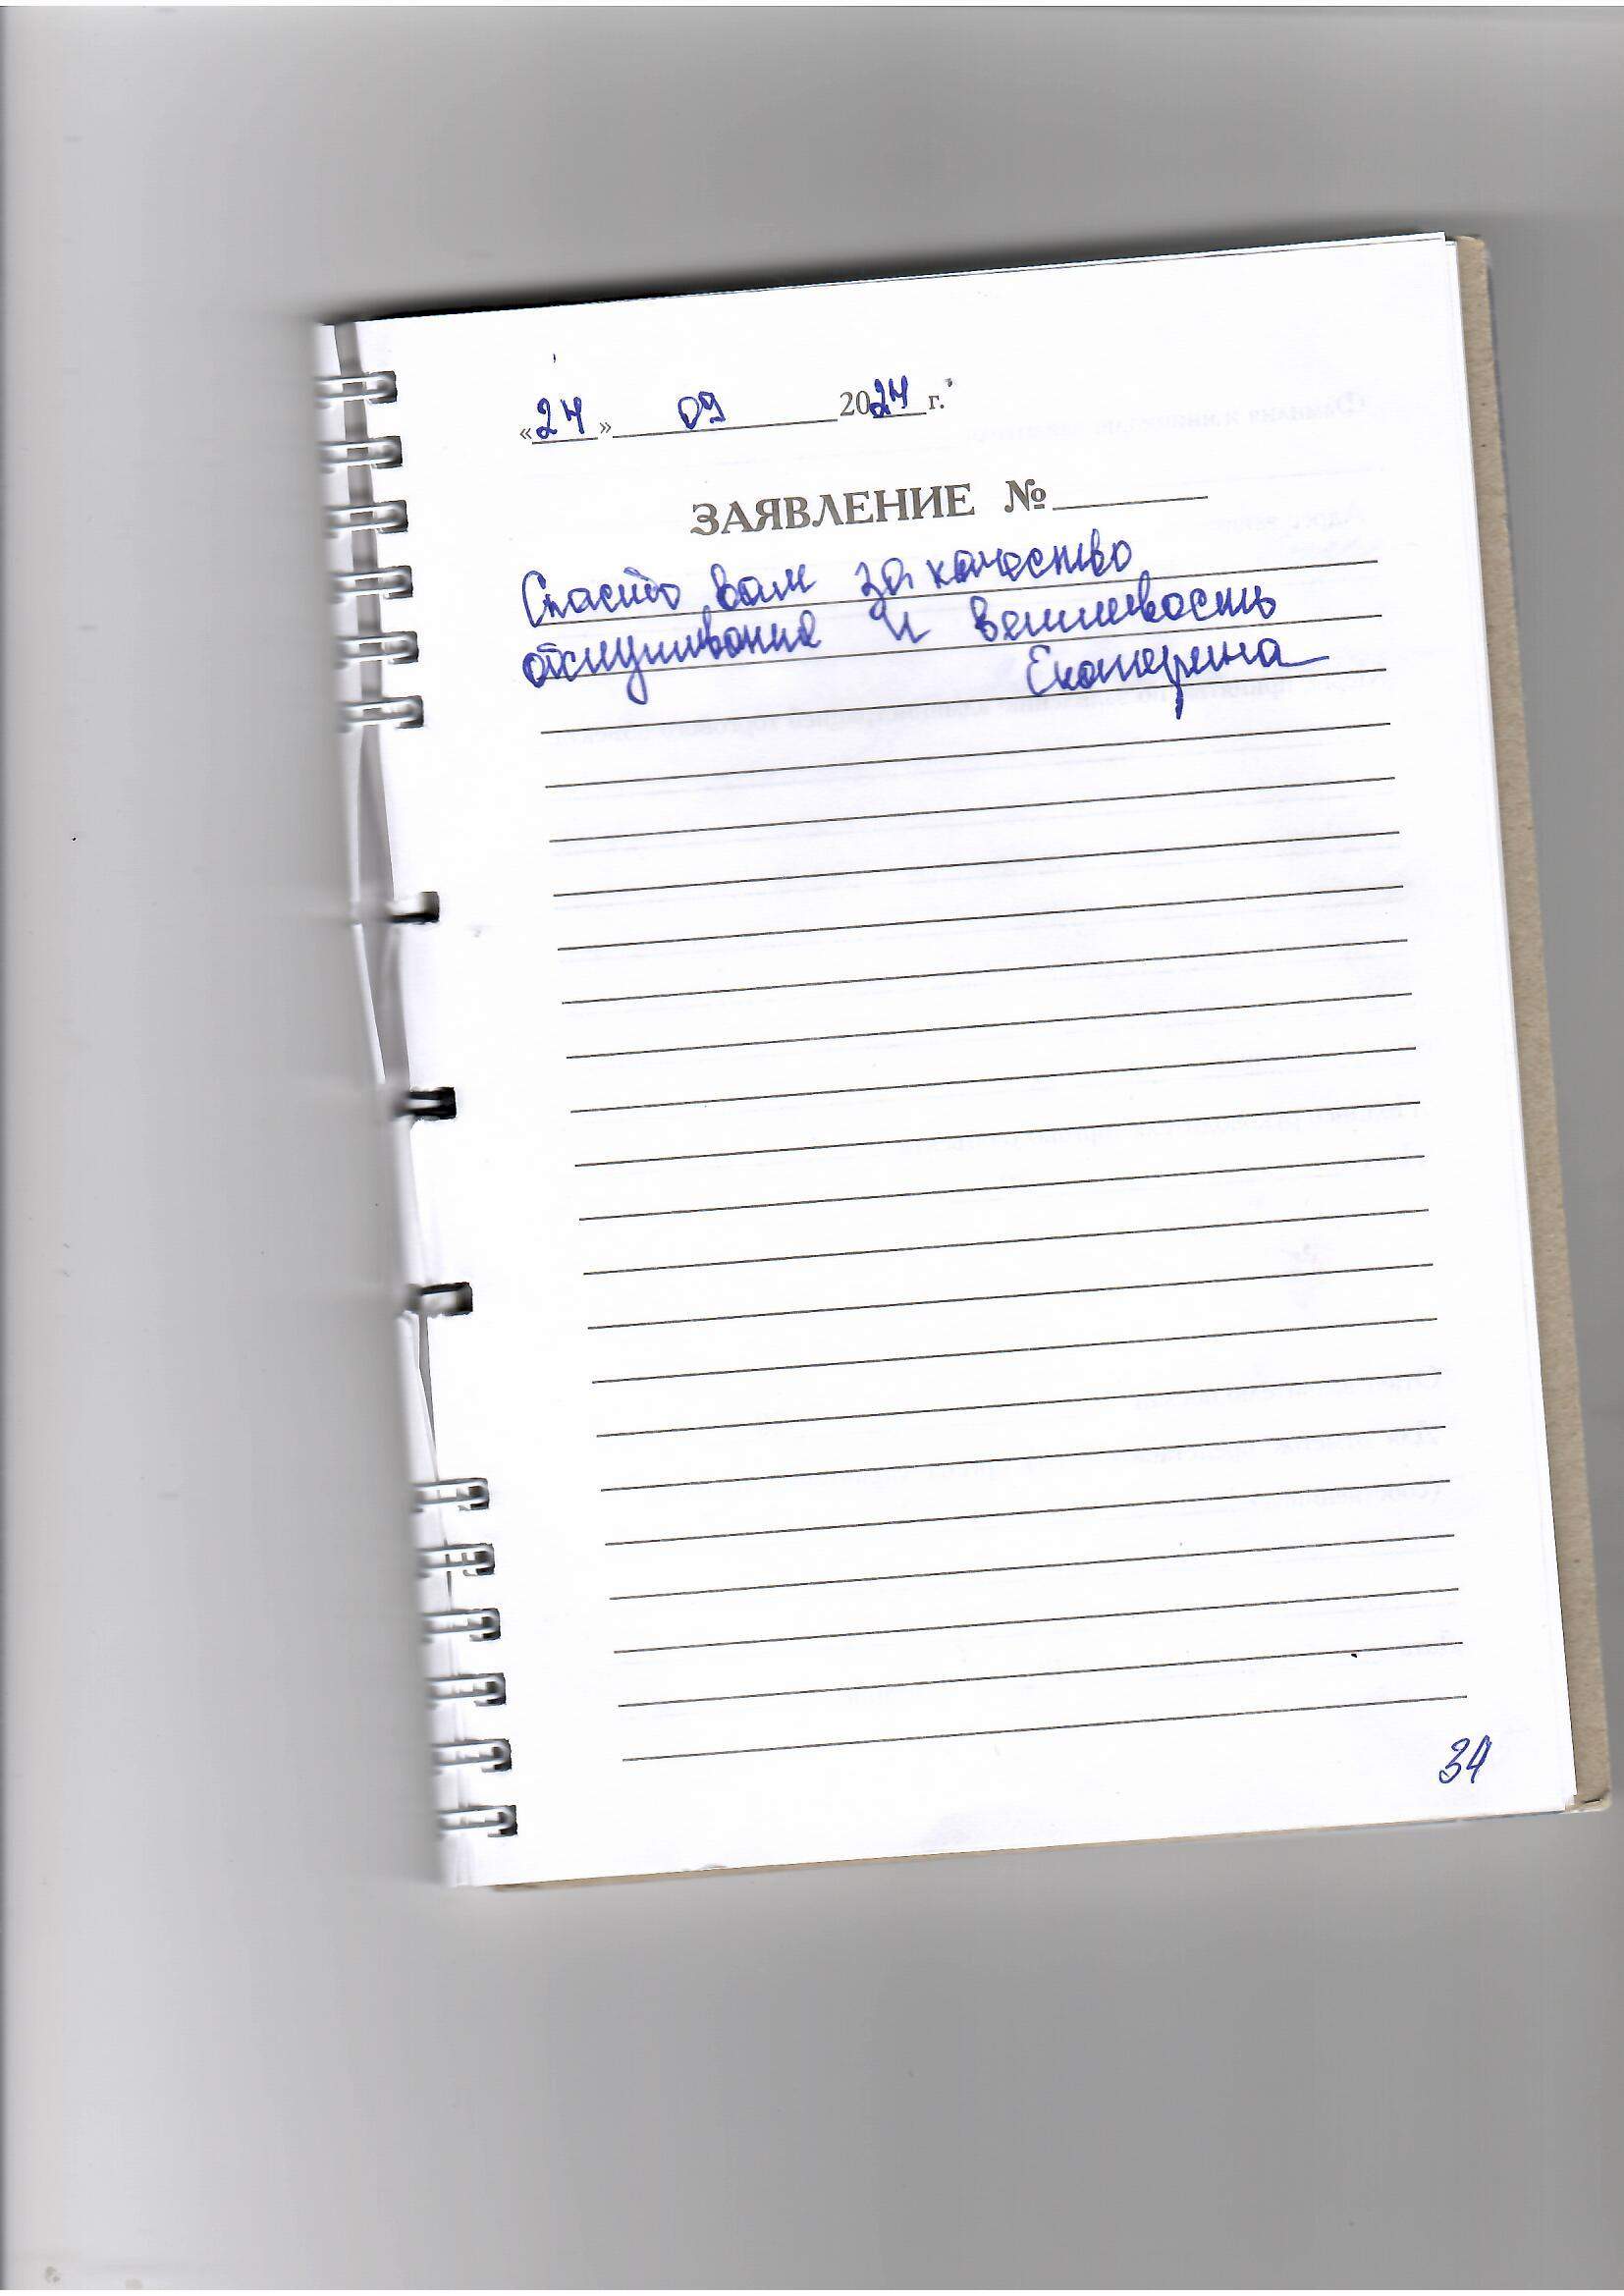 «24» 09 2024 г.
ЗАЯВЛЕНИЕ №
Спасибо вам за качество
обслуживания и вежливость
Екатерина
34